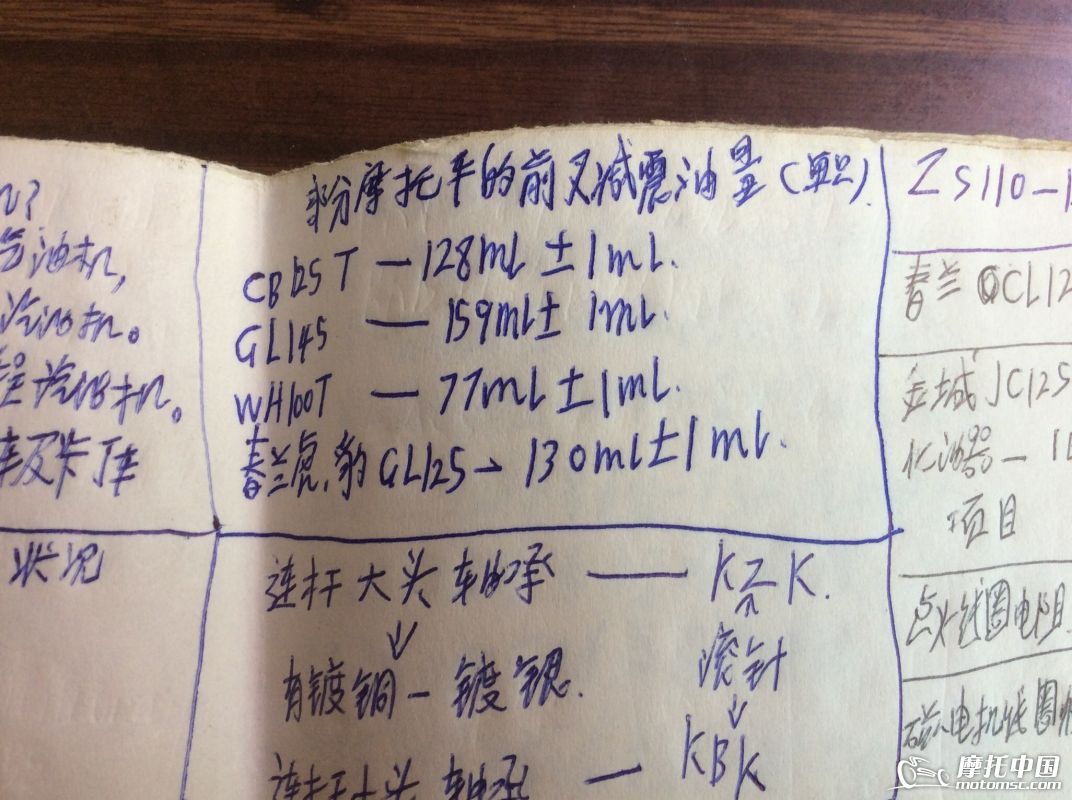 油机,
汽油机。
汽油机。
车及卡丁车
状况
部分摩托车的前叉减震油量(单只).
CB125T — 128ml ± 1ml.
GL145 — 159ml ± 1ml.
WH100T — 77ml ± 1ml.
春兰虎.豹GL125 — 130ml ± 1ml.
连杆大头轴承 —— KZK.
滚针
有镀铜 — 镀银.
连杆大头轴承 — KBK
ZS110-1
春兰CL12
金城JC125
化油器 — 1
项目
点火线圈电阻
磁电机线圈
摩托中国
motomsc.com